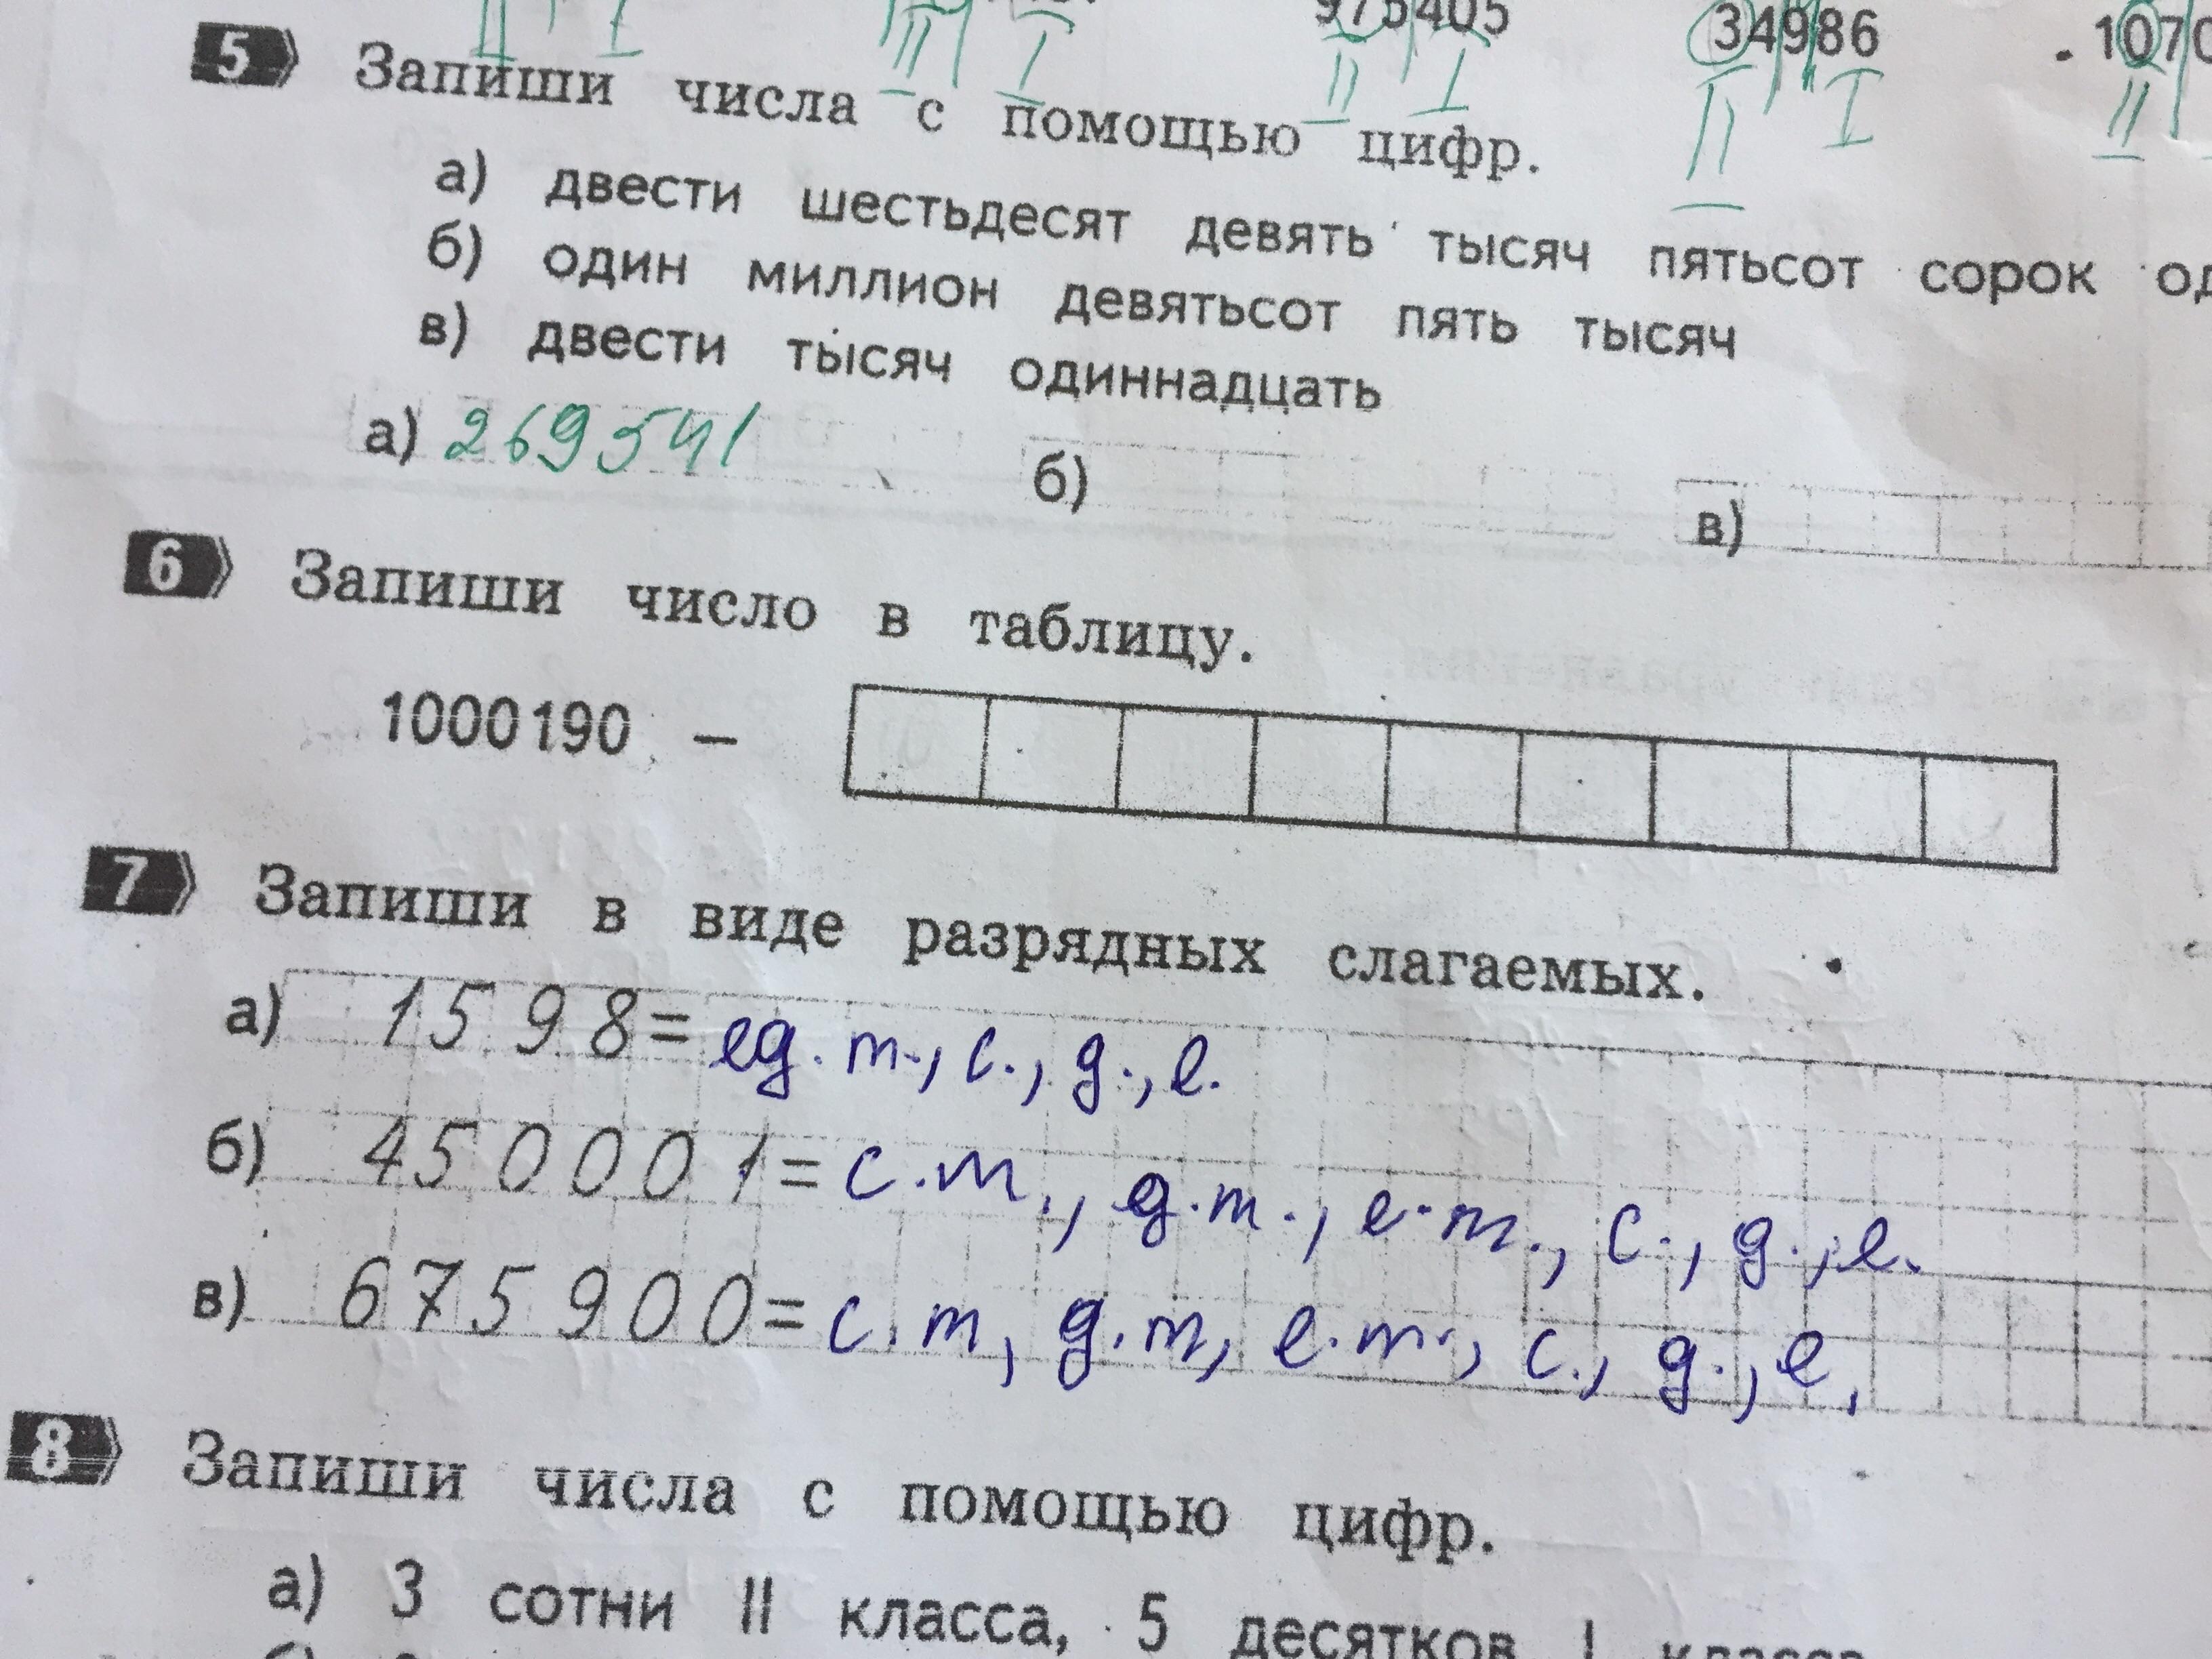 975405 34986 1070
II I III I II I II I II
5 Запиши числа с помощью цифр.
а) двести шестьдесят девять тысяч пятьсот сорок
б) один миллион девятьсот пять тысяч
в) двести тысяч одиннадцать
а) 269541 б) в)
6 Запиши число в таблицу.
1000190 –
7 Запиши в виде разрядных слагаемых.
а) 1598= ед. т., с., д., е.
б) 450001= с.т., д.т., е.т., с., д., е.
в) 675900= с.т, д.т, е.т., с., д., е.
8 Запиши числа с помощью цифр.
а) 3 сотни II класса, 5 десятков I класса